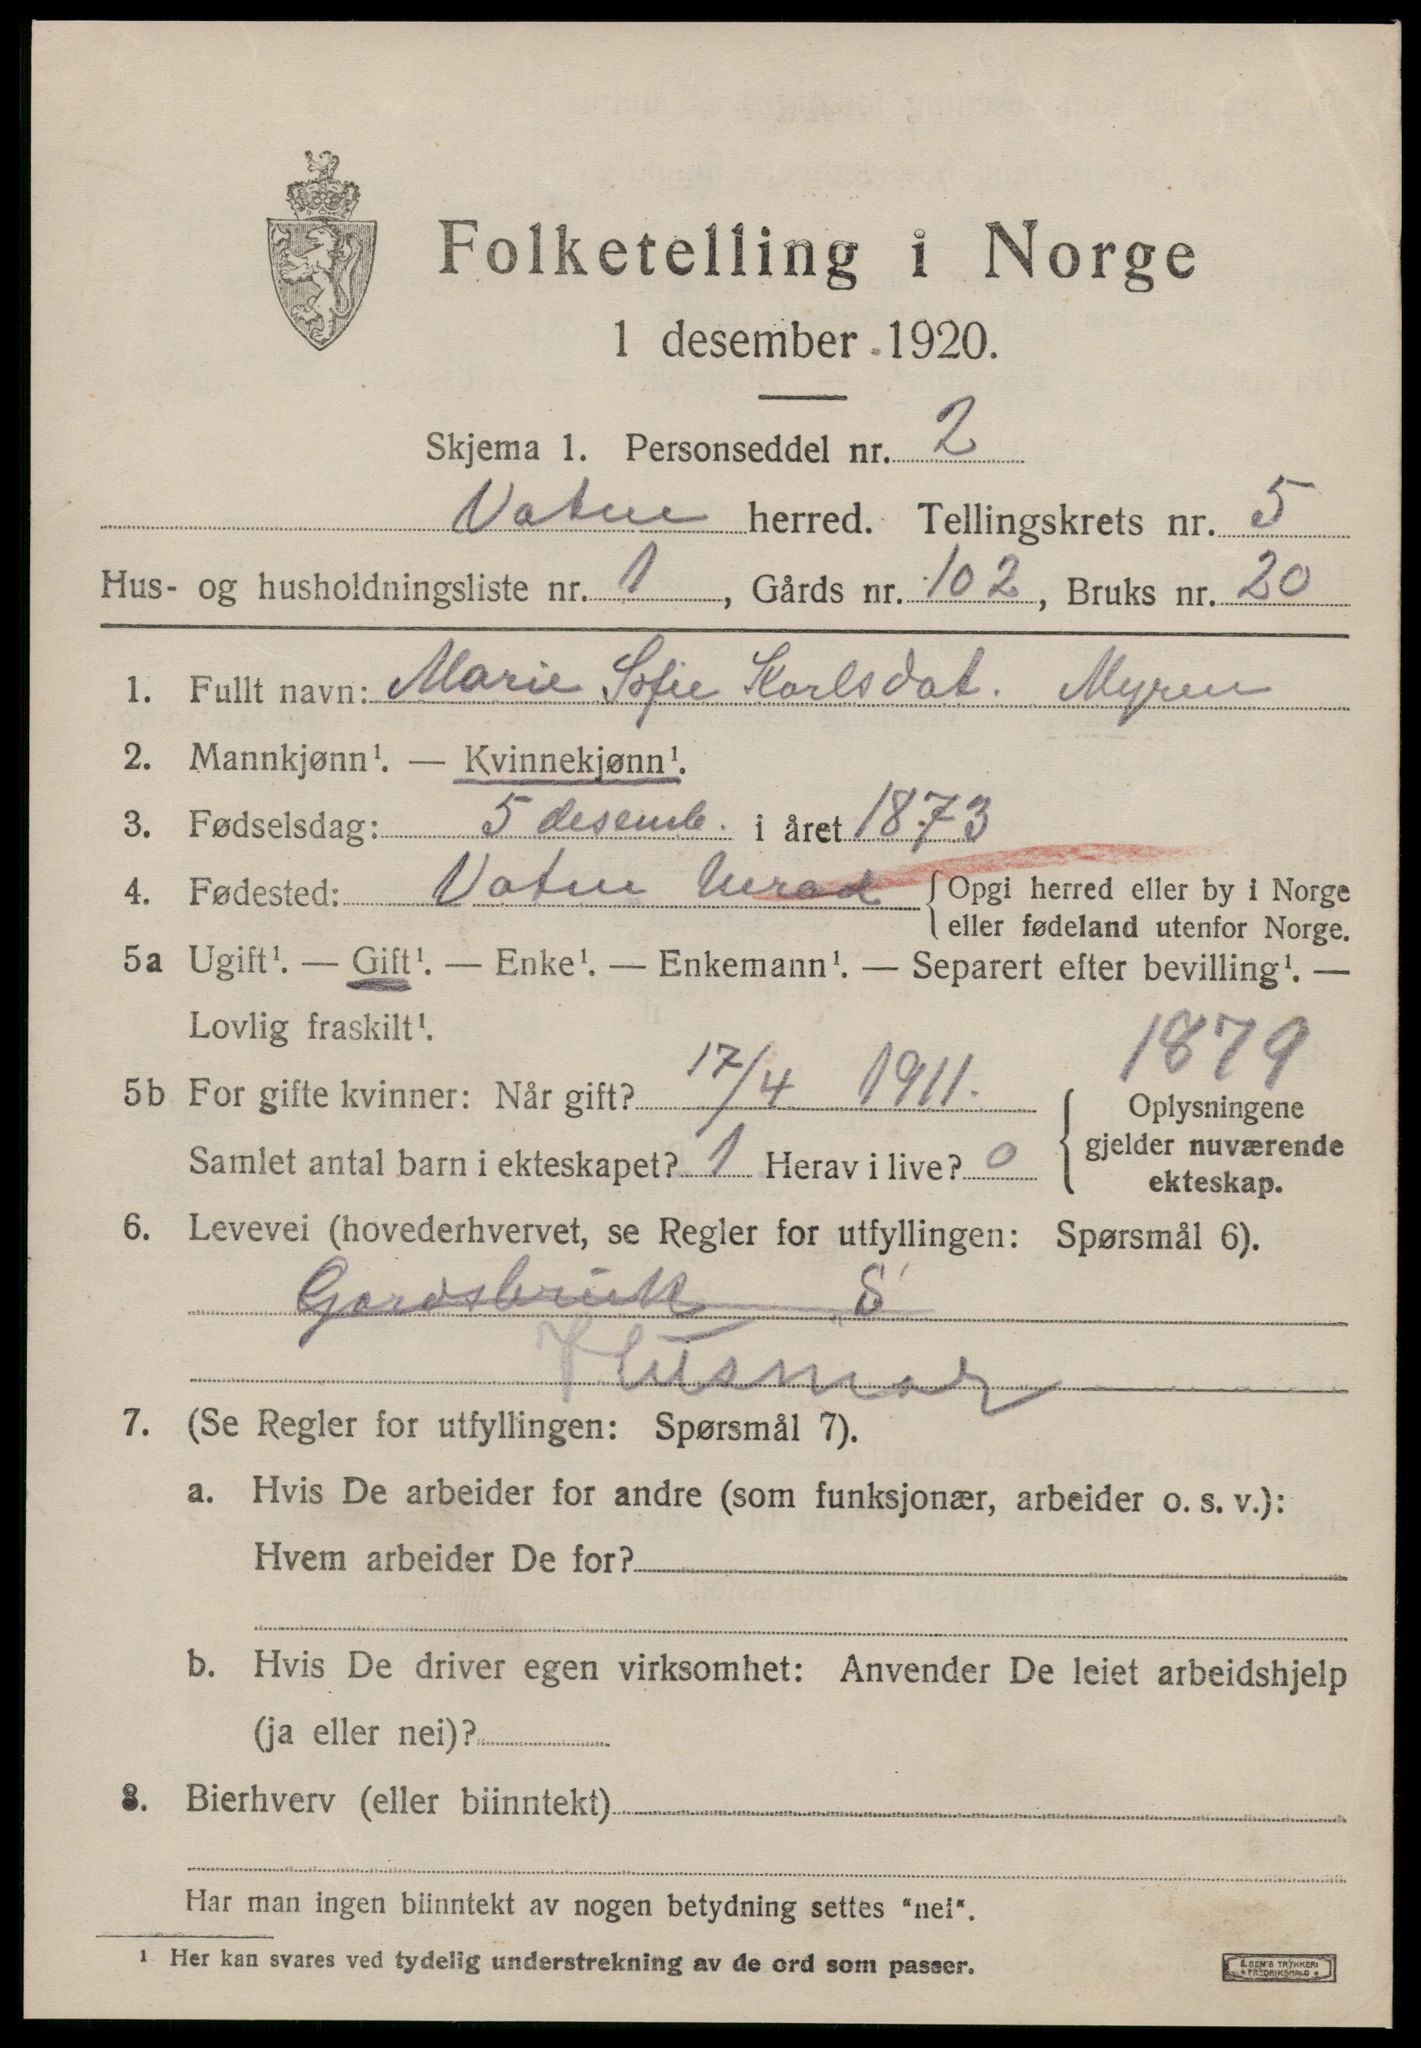 Folketelling i Norge
1 desember 1920.
Skjema 1. Personseddel nr. 2
Vatne herred. Tellingskrets nr. 5
Hus- og husholdningsliste nr. 1, Gårds nr. 102, Bruks nr. 20
1. Fullt navn: Marie Sofie Karlsdat. Myren
2. Mannkjønn¹. — Kvinnekjønn¹.
3. Fødselsdag: 5 desemb. i året 1873
4. Fødested: Vatne herad { Opgi herred eller by i Norge
eller fødeland utenfor Norge.
5a Ugift¹. — Gift¹. — Enke¹. — Enkemann¹. — Separert efter bevilling¹. —
Lovlig fraskilt¹.
1879
5b For gifte kvinner: Når gift? 17/4 1911.
Samlet antal barn i ekteskapet? 1 Herav i live? 0
Oplysningene
gjelder nuværende
ekteskap.
6. Levevei (hovederhvervet, se Regler for utfyllingen: Spørsmål 6).
Gardsbruk S
Husmor
7. (Se Regler for utfyllingen: Spørsmål 7).
a. Hvis De arbeider for andre (som funksjonær, arbeider o. s. v.):
Hvem arbeider De for?
b. Hvis De driver egen virksomhet: Anvender De leiet arbeidshjelp
(ja eller nei)?
8. Bierhverv (eller biinntekt)
Har man ingen biinntekt av nogen betydning settes “nei“.
¹ Her kan svares ved tydelig understrekning av de ord som passer.
E. SEM'S TRYKKERI
FREDRIKSHALD